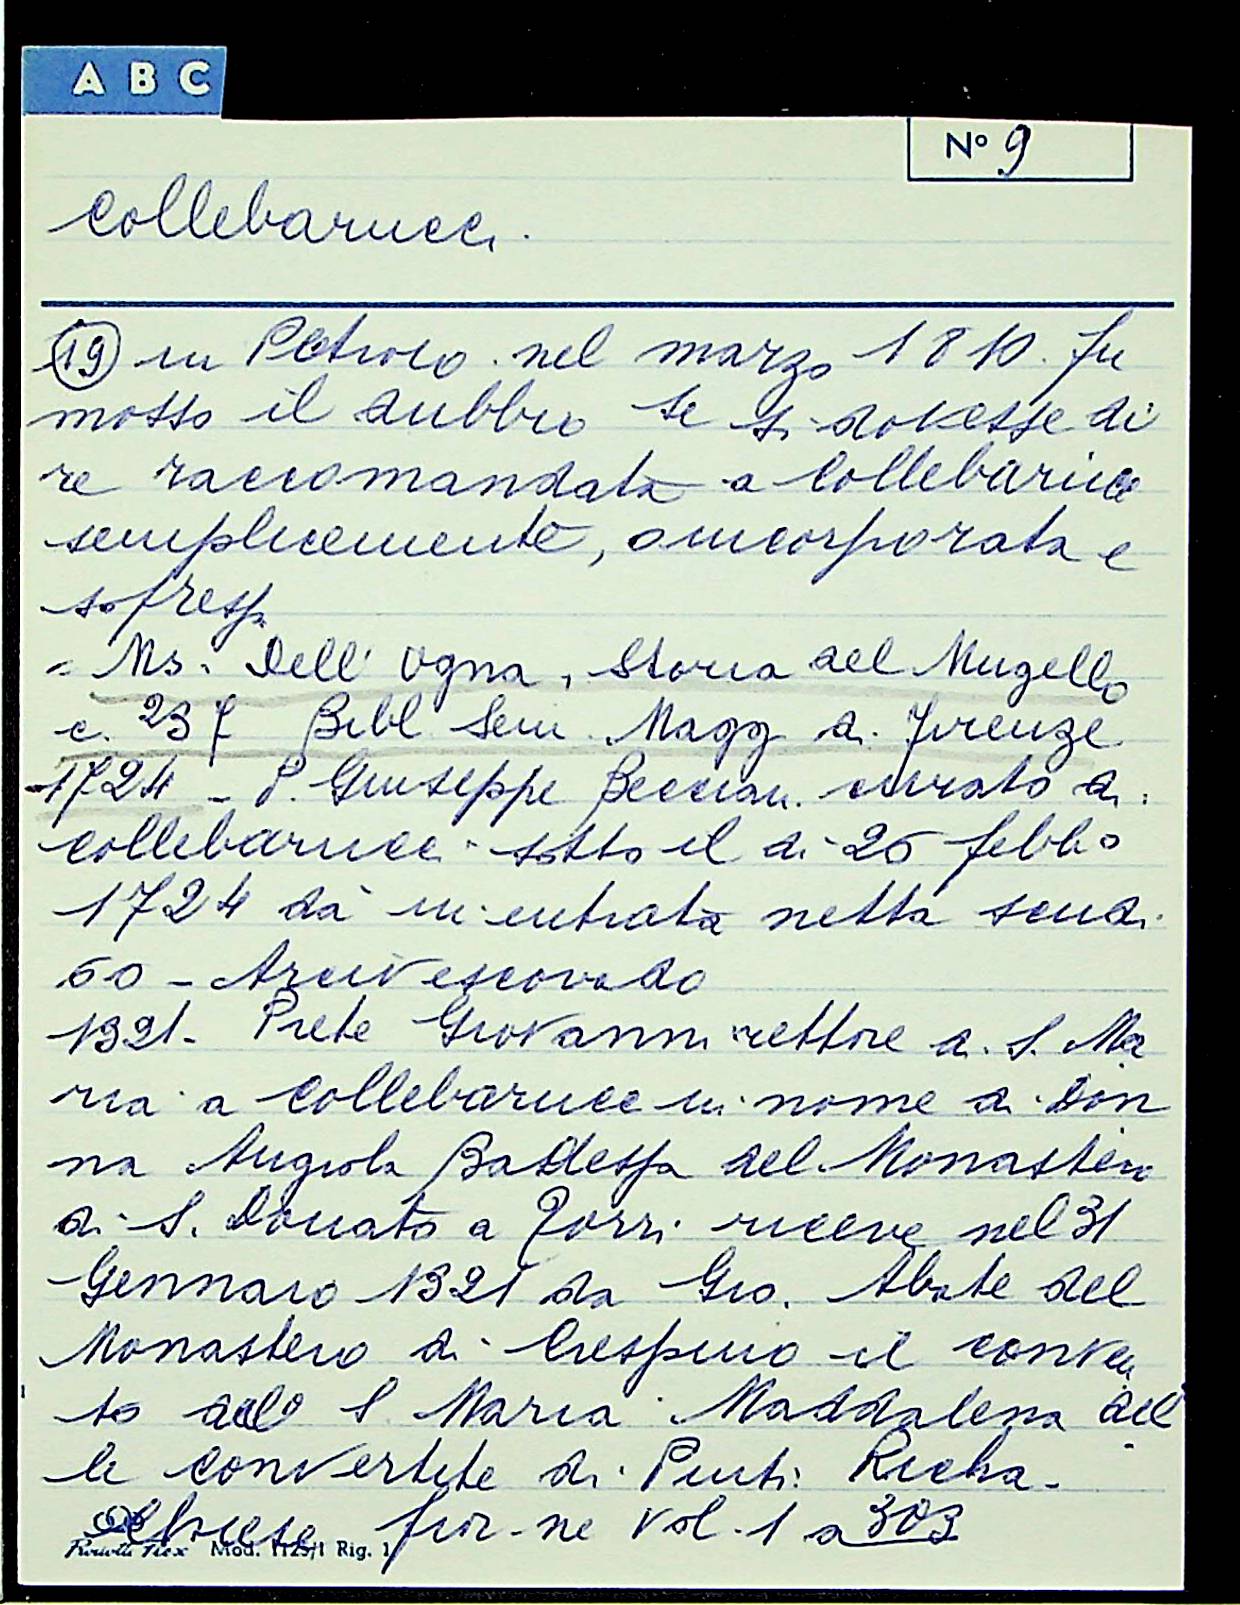 A B C
N° 9
Collebarucci.
(19) in Petroio nel marzo 1810. fu
mosso il dubbio se si dovesse di
re raccomandata a Collebarucci
semplicemente, o incorporata e
sofressa
= Ms. Dell' Ogna, Storia del Mugello
c. 237 Bibl Sem. Magg di Firenze
1724 - P. Giuseppe Becciani curato di
Collebarucci sotto il di 26 febbo
1724 dà in entrata netta scudi
60 - Arcivescovado
1321 - Prete Giovanni rettore di S. Ma
ria a Collebarucci in nome di Don
na Angiola Badessa del Monastero
di S. Donato a Torri riceve nel 31
Gennaro 1321 da Gio. Abate del
Monastero di Crespino il conven
to di S. Maria Maddalena del
le convertite di Pinti: Richa -
Chiese fior-ne vol. 1 a 303
Mod. 1125/1 Rig. 1